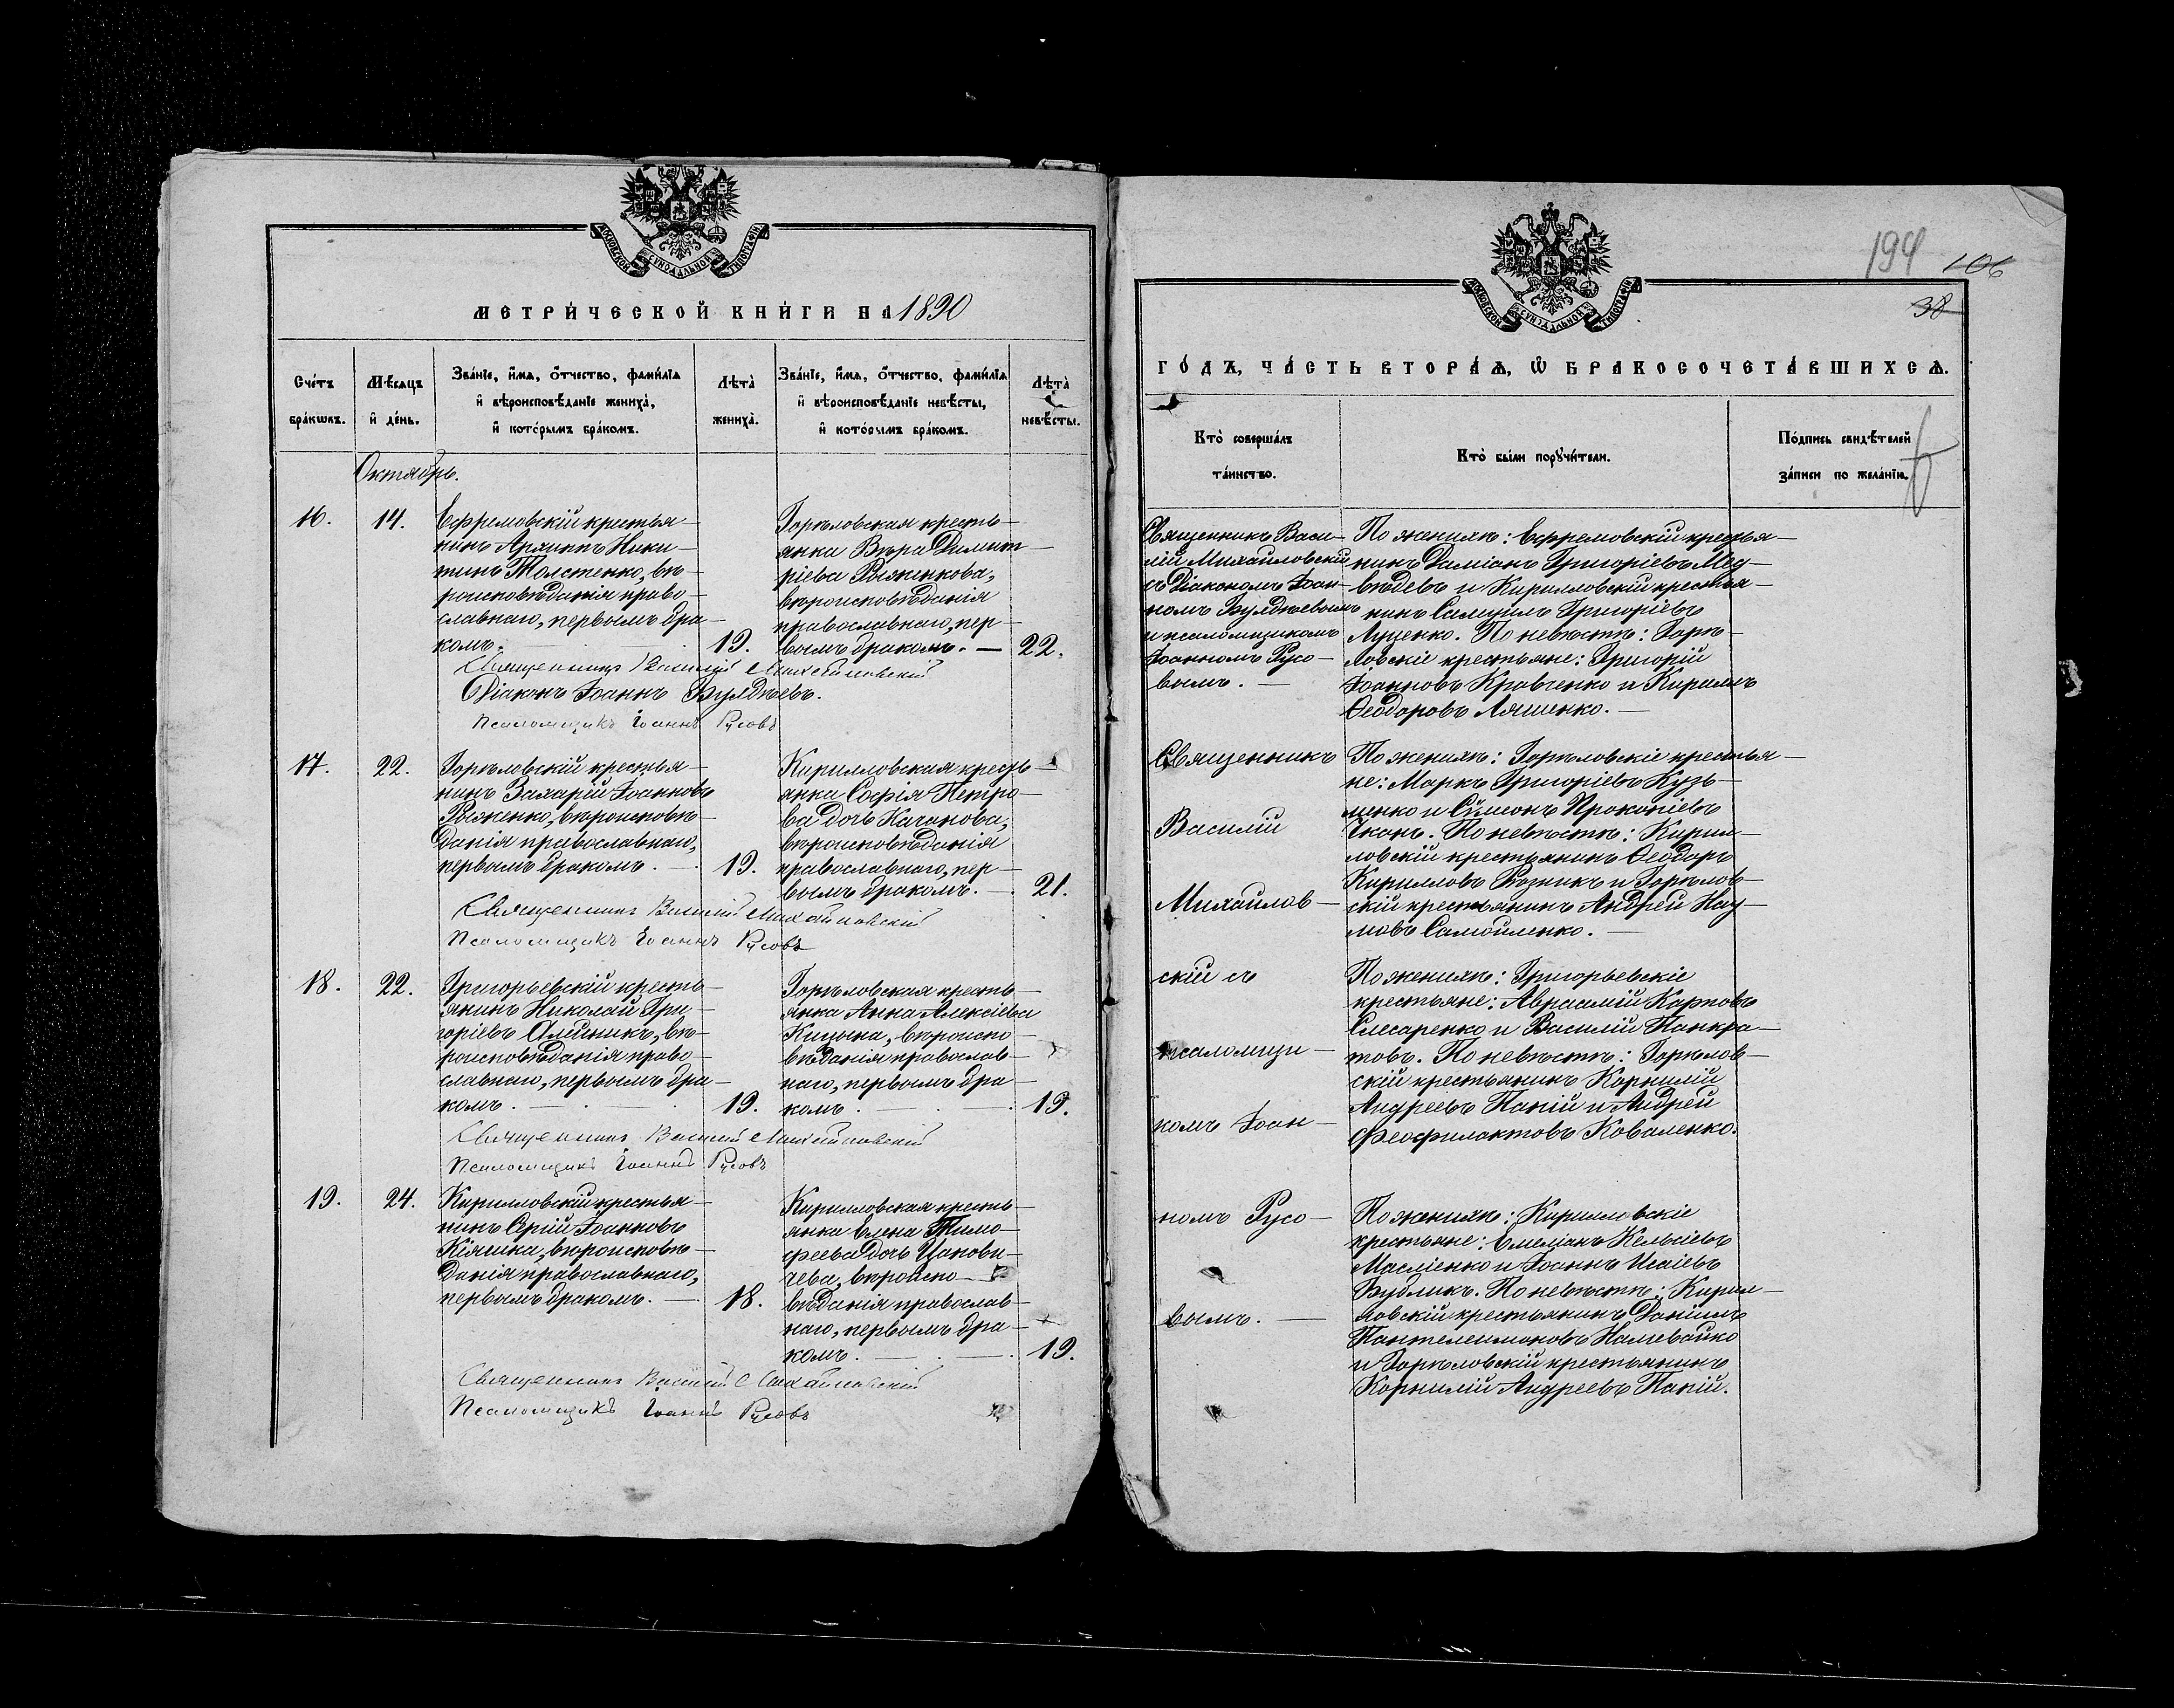 МОСКОВСКОЙ СѴНОДАЛЬНОЙ ТИПОГРАФІИ
МЕТРИ́ЧЕСКОЙ КНИ́ГИ НА 1890
Сче́тъ
бра́кωвъ.
Мѣ́сяцъ
и҆ де́нь.
Зва́нїе, и҆́мя, ѻ҆́тчество, фами́лїя
и҆ вѣроисповѣ́данїе жениха̀,
и҆ кото́рымъ бра́комъ.
Лѣта̀
жениха̀.
Зва́нїе, и҆́мя, ѻ҆́тчество, фами́лїя
и҆ вѣроисповѣ́данїе невѣ́сты,
и҆ кото́рымъ бра́комъ.
Лѣта̀
невѣ́сты.
Октябрь.
16.
14.
Ефремовскій крестья-
нинъ Архиппъ Ники-
тинъ Толстенко, вѣ-
роисповѣданія право-
славнаго, первымъ бра-
комъ.
19.
Горѣловская кресть-
янка Вѣра Димит-
ріева Рыженкова,
вѣроисповѣданія
православнаго, пер-
вымъ бракомъ. —
22.
Священникъ Василій Михайловскій
Діаконъ Іоаннъ Булдѣевъ.
Псаломщикъ Іоаннъ Русовъ
17.
22.
Горѣловскій крестья-
нинъ Захарій Іоанновъ
Рыженко, вѣроисповѣ-
данія православнаго,
первымъ бракомъ. —
19.
Кирилловская кресть-
янка Софія Петро-
ва дочь Качанова,
вѣроисповѣданія
православнаго, пер-
вымъ бракомъ. —
21.
Священникъ Василій Михайловскій
Псаломщикъ Іоаннъ Русовъ
18.
22.
Григорьевскій кресть-
янинъ Николай Гри-
горіевъ Олейникъ, вѣ-
роисповѣданія право-
славнаго, первымъ бра-
комъ. —
19.
Горѣловская кресть-
янка Анна Алексіева
вѣроиспо-
вѣданія православ-
наго, первымъ бра-
комъ. —
19.
Священникъ Василій Михайловскій
Псаломщикъ Іоаннъ Русовъ
19.
24.
Кирилловскій крестья-
нинъ Сергій Іоанновъ
Кіяшка, вѣроисповѣ-
данія православнаго,
первымъ бракомъ. —
18.
Кирилловская кресть-
янка Елена Тимо-
феева дочь Цанови-
чева, вѣроиспо-
вѣданія православ-
наго, первымъ бра-
комъ. —
19.
Священникъ Василій Михайловскій
Псаломщикъ Іоаннъ Русовъ
194 106
38
МОСКОВСКОЙ СѴНОДАЛЬНОЙ ТИПОГРАФІИ
ГО́ДЪ, ЧА́СТЬ ВТОРА́Я, Ѡ҆ БРАКОСОЧЕТА́ВШИХСЯ.
Кто̀ соверша́лъ
та́инство.
Кто̀ бы́ли порꙋчи́тели.
По́дпись свидѣ́телей
за́писи по жела́нїю.
Священникъ Васи-
лій Михайловскій
съ Діакономъ Іоан-
номъ Булдѣевымъ
и псаломщикомъ
Іоанномъ Русо-
вымъ. —
По женихѣ: Ефремовскій крестья-
нинъ Даміанъ Григоріевъ Мед-
вѣдевъ и Кирилловскій крестья-
нинъ Самуилъ Григоріевъ
Луценко. По невѣстѣ: Горѣ-
ловскіе крестьяне: Григорій
Іоанновъ Кравченко и Кириллъ
Ѳеодоровъ Ляшенко. —
Священникъ
Василій
Михайлов-
скій съ
псаломщи-
комъ Іоан-
номъ Русо-
вымъ. —
По женихѣ: Горѣловскіе крестья-
не: Маркъ Григоріевъ Кузь-
менко и Сѵмеонъ Прокопіевъ
Чканъ. По невѣстѣ: Кирил-
ловскій крестьянинъ Ѳеодоръ
Кирилловъ Рѣзникъ и Горѣлов-
скій крестьянинъ Андрей Нау-
мовъ Самойленко. —
По женихѣ: Григорьевскіе
крестьяне: Авраамій Карповъ
Слесаренко и Василій Панкра-
товъ. По невѣстѣ: Горѣлов-
скій крестьянинъ Корнилій
Андреевъ Папій и Андрей
Феофилактовъ Коваленко.
По женихѣ: Кирилловскіе
крестьяне: Емеліанъ Кельсіевъ
Масліенко и Іоаннъ Исаіевъ
Бубликъ. По невѣстѣ: Кирил-
ловскій крестьянинъ Даніилъ
Пантелеимоновъ Наливайко
и Горѣловскій крестьянинъ
Корнилій Андреевъ Папій.